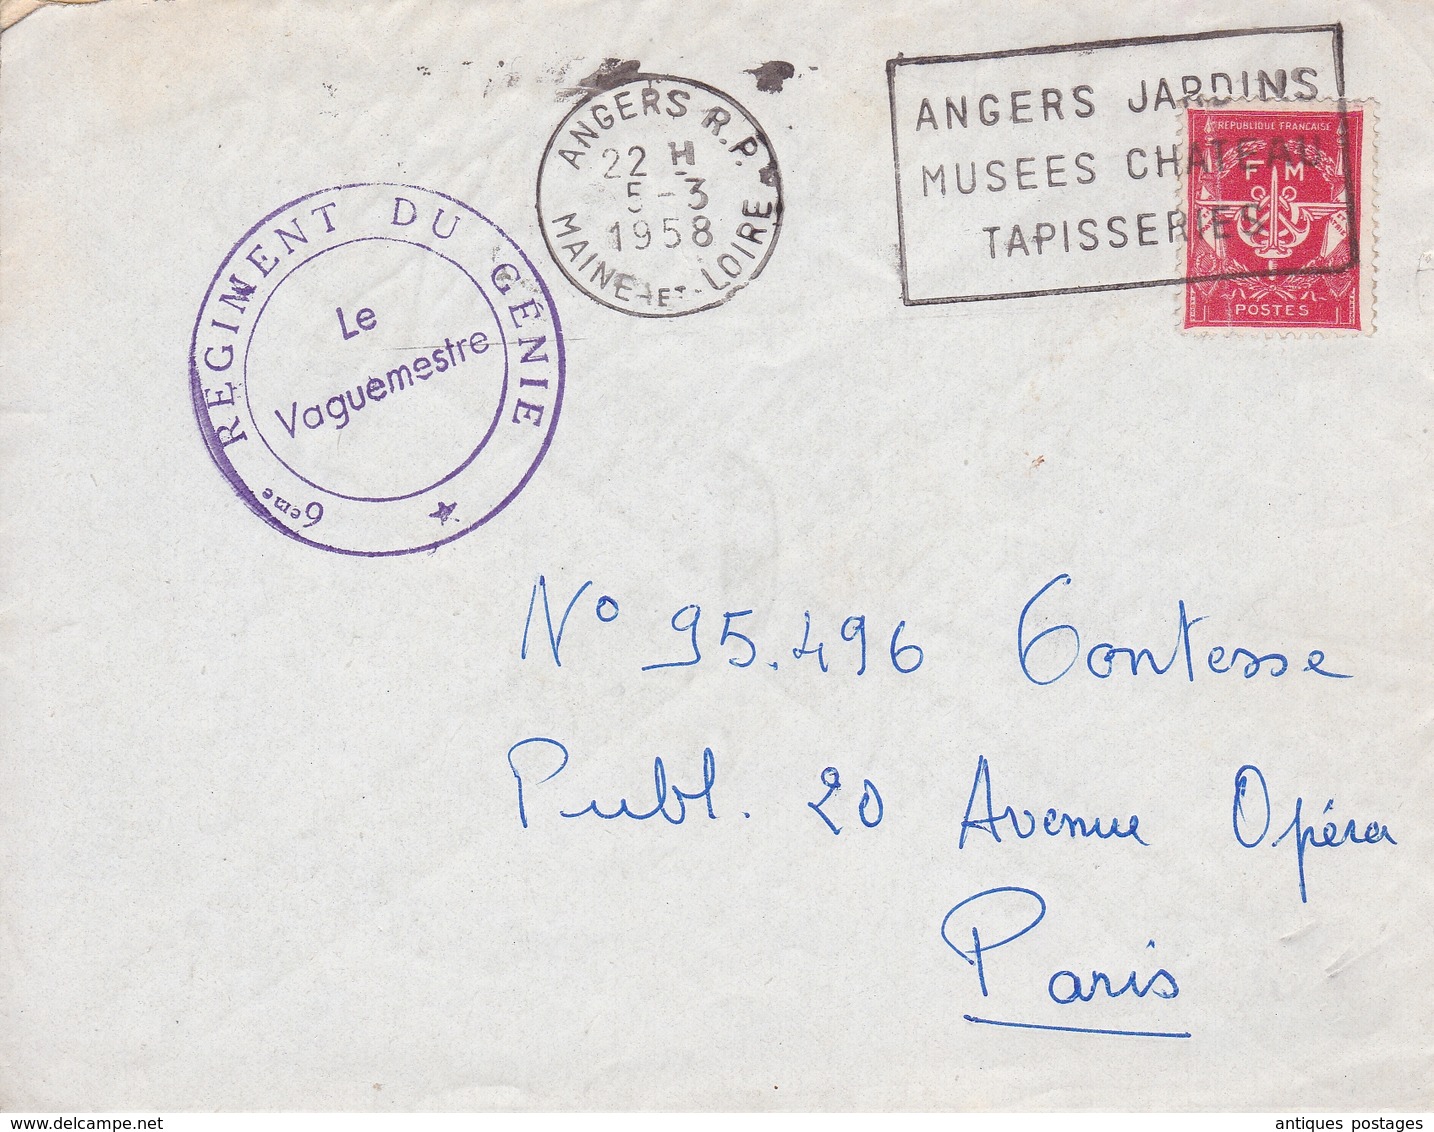 ANGERS R.P.
22 H
5-3
1958
MAINE-ET-LOIRE
ANGERS JARDINS
MUSEES CHATEAU
TAPISSERIES
REPUBLIQUE FRANCAISE
F M
POSTES
6eme REGIMENT DU GÉNIE
Le
Vaguemestre
N° 95.496 Contesse
Publ. 20 Avenue Opéra
Paris
antiques postages
delcampe.net